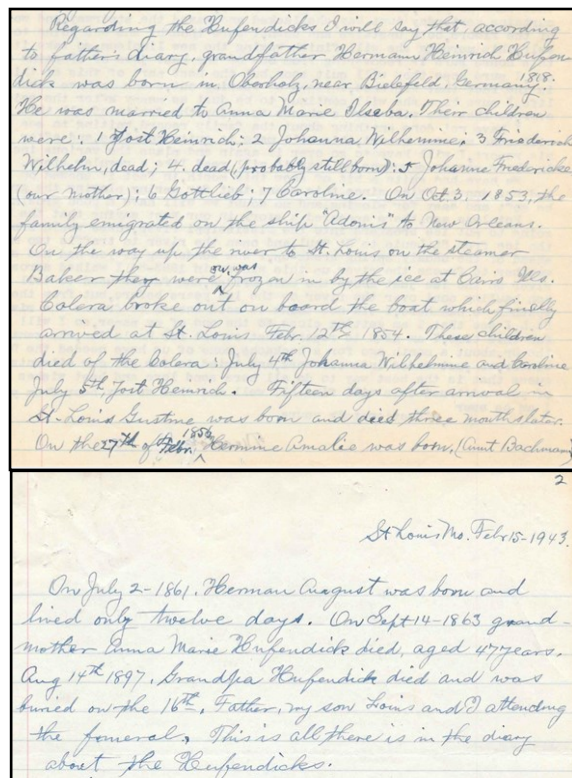 Regarding the Hufendicks I will say that, according
to father's diary, grandfather Hermann Heinrich Hufen-
dick was born in Oberholz, near Bielefeld, Germany 1818.
He was married to Anna Marie Ilseba. Their children
were: 1 Jost Heinrich; 2 Johanna Wilhemine; 3 Friederich
Wilhelm, dead; 4. dead, (probably still born); 5 Johanne Fredericke
(our mother); 6 Gottlieb; 7 Caroline. On Oct. 3, 1853, the
family emigrated on the ship "Adonis" to New Orleans.
On the way up the river to St. Louis on the steamer
Baker they were frozen in by the ice at Cairo Ills.
Colera broke out on board the boat which finally
arrived at St. Louis Febr. 12th 1854. These children
died of the Colera: July 4th Johanna Wilhelmine and Caroline
July 5th Jost Heinrich. Fifteen days after arrival in
St. Louis Gustave was born and died three months later.
On the 27th of Febr. 1856 Hermine Amalie was born. (Aunt Bachmann)
2
St Louis Mo. Febr 15-1943.
On July 2-1861, Herman August was born and
lived only twelve days. On Sept 14-1863 grand-
mother Anna Marie Hufendick died, aged 47 years.
Aug 14th 1897, Grandpa Hufendick died and was
buried on the 16th. Father, my son Louis and I attending
the funeral. This is all there is in the diary
about the Hufendicks.